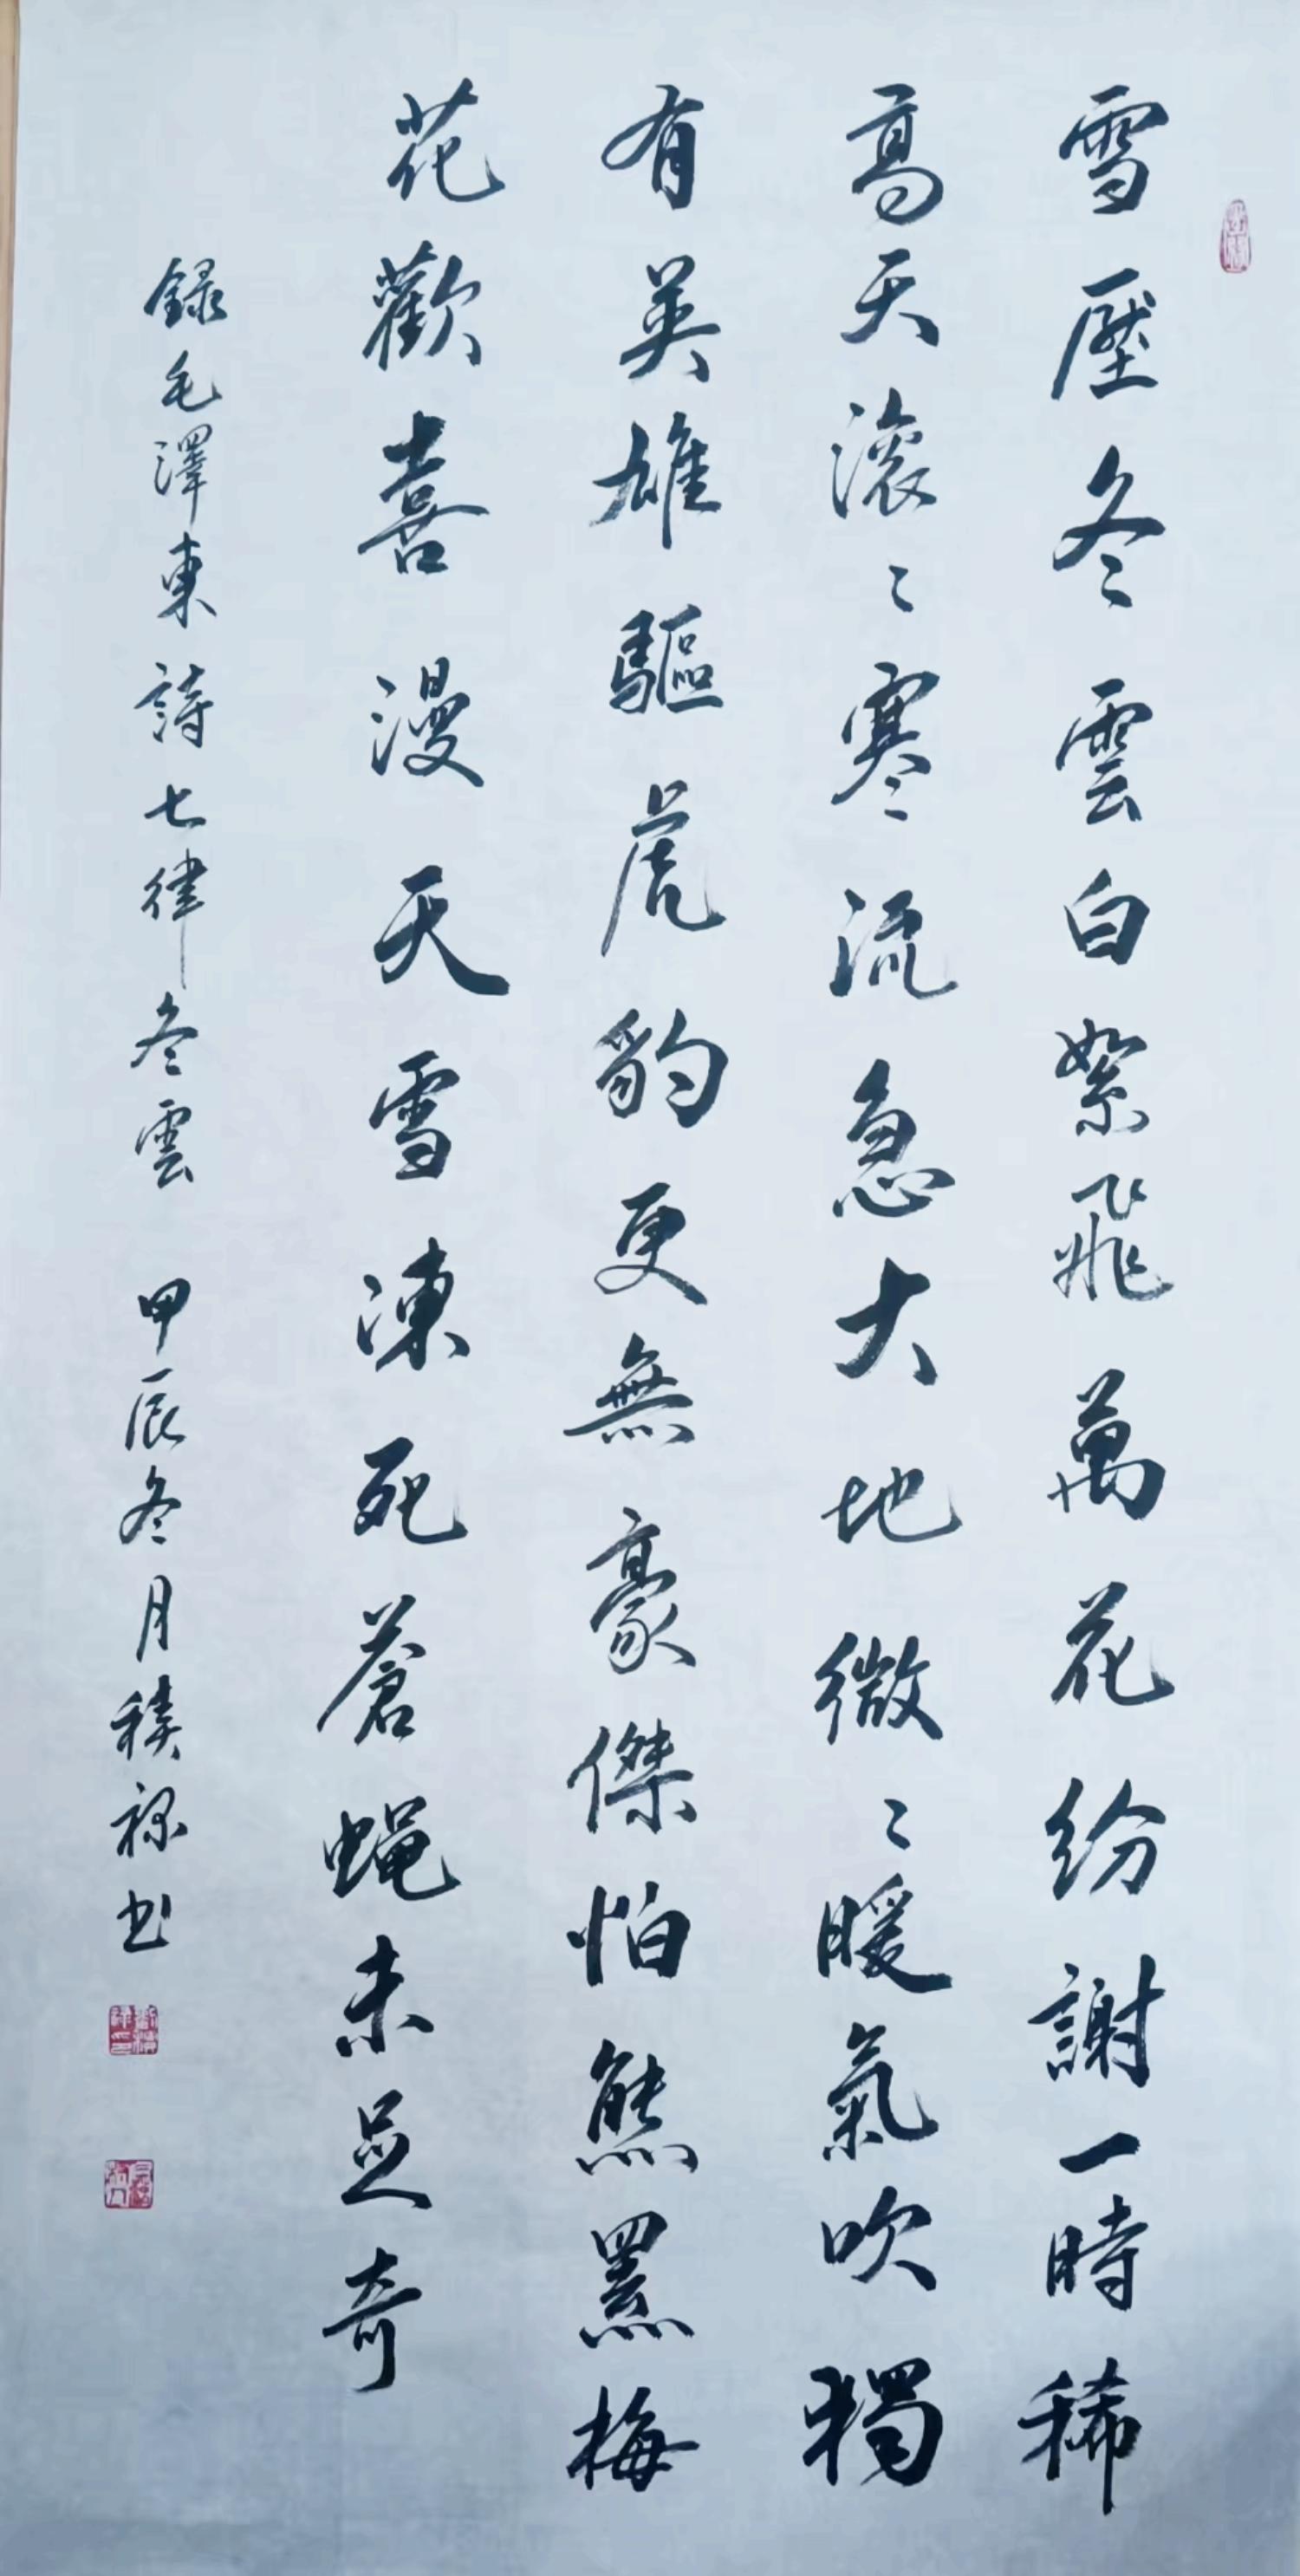 雪壓冬雲白絮飛萬花紛謝一時稀
高天滾〻寒流急大地微〻暖氣吹獨
有英雄驅虎豹更無豪傑怕熊羆梅
花歡喜漫天雪凍死蒼蝇未足奇
録毛澤東詩七律冬雲 甲辰冬月積祿书